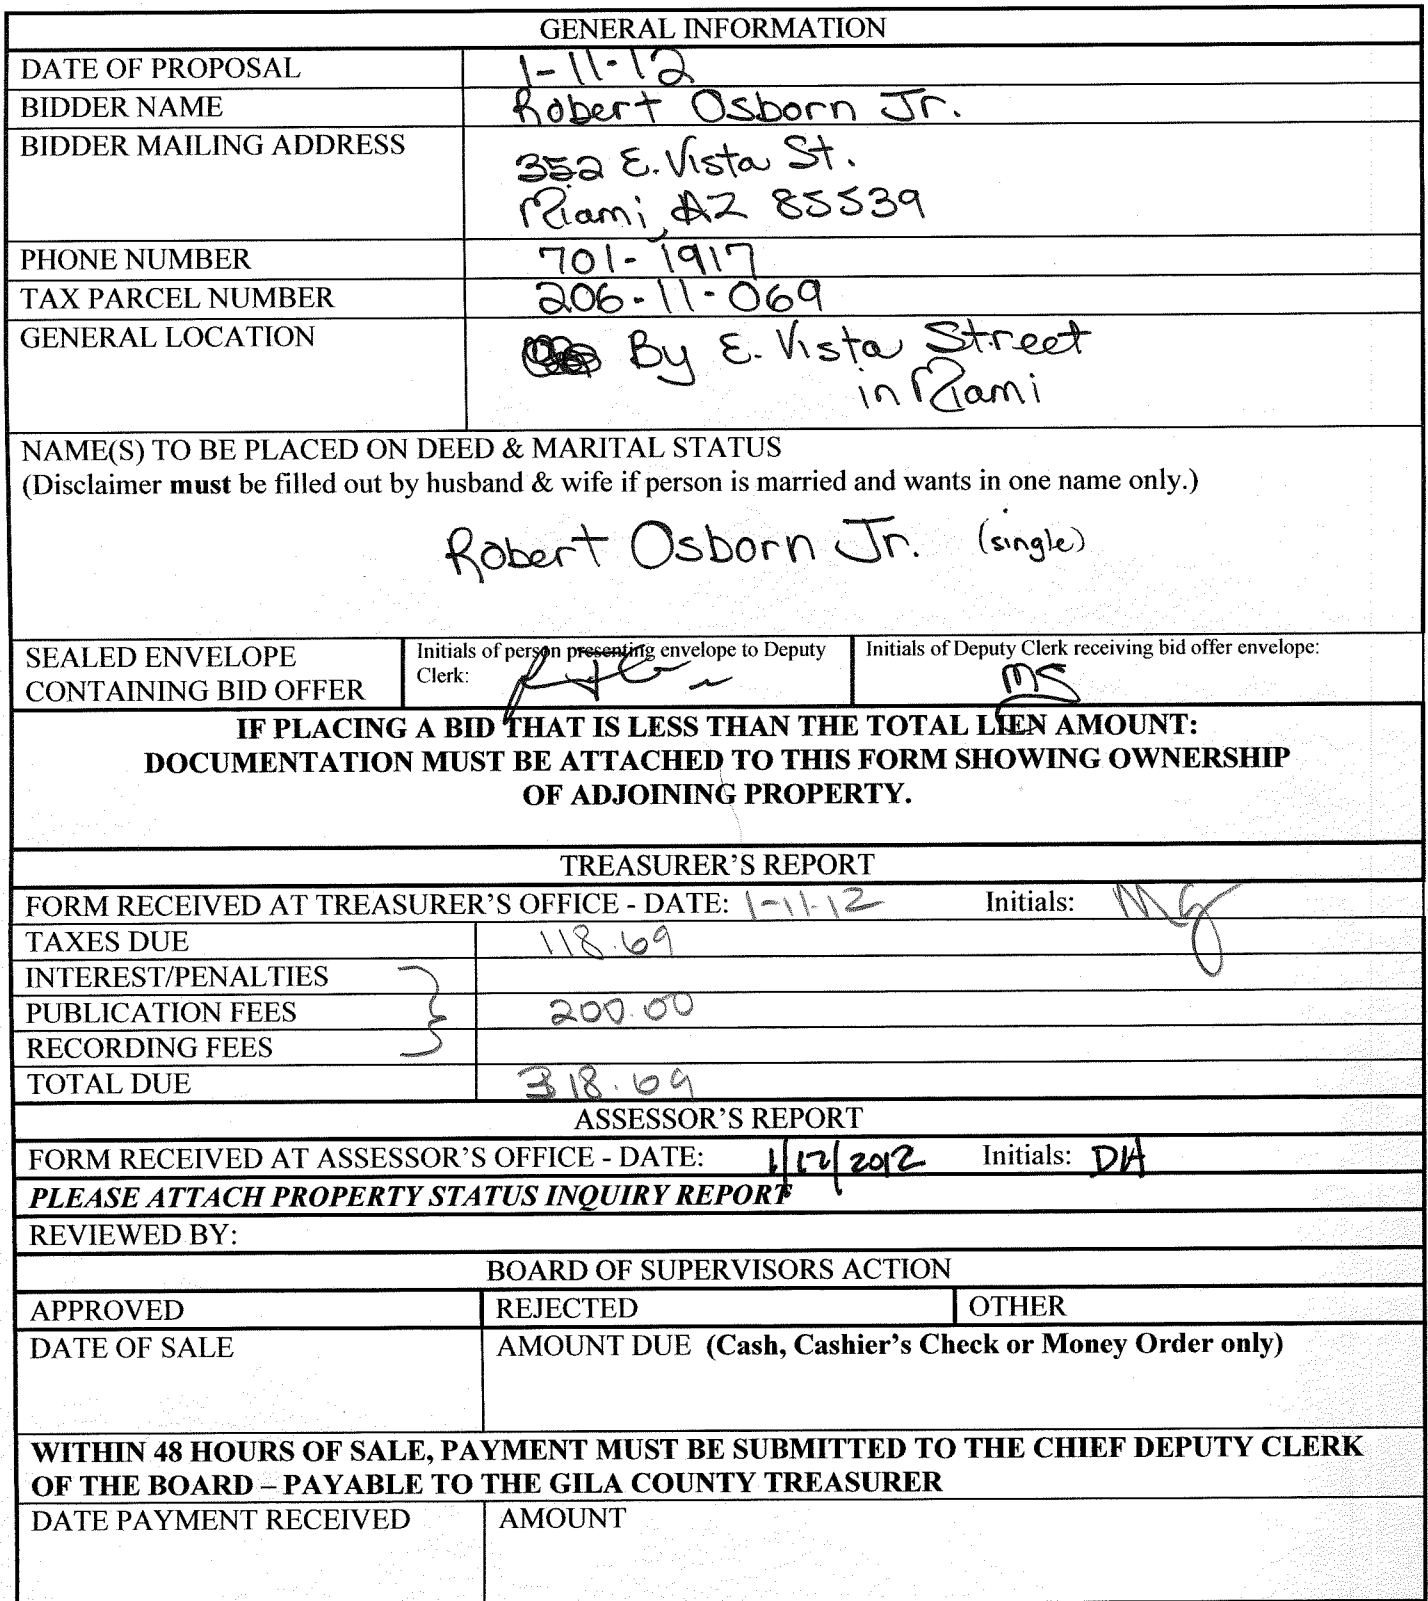 GENERAL INFORMATION
DATE OF PROPOSAL 1-11-12
BIDDER NAME Robert Osborn Jr.
BIDDER MAILING ADDRESS 352 E. Vista St.
Miami, AZ 85539
PHONE NUMBER 701-1917
TAX PARCEL NUMBER 206-11-069
GENERAL LOCATION By E. Vista Street
in Miami
NAME(S) TO BE PLACED ON DEED & MARITAL STATUS
(Disclaimer must be filled out by husband & wife if person is married and wants in one name only.)
Robert Osborn Jr. (single)
SEALED ENVELOPE
CONTAINING BID OFFER
Initials of person presenting envelope to Deputy
Clerk:
Initials of Deputy Clerk receiving bid offer envelope:
MS
IF PLACING A BID THAT IS LESS THAN THE TOTAL LIEN AMOUNT:
DOCUMENTATION MUST BE ATTACHED TO THIS FORM SHOWING OWNERSHIP
OF ADJOINING PROPERTY.
TREASURER'S REPORT
FORM RECEIVED AT TREASURER'S OFFICE - DATE: 1-11-12 Initials: Mg
TAXES DUE 118.69
INTEREST/PENALTIES
PUBLICATION FEES 200.00
RECORDING FEES
TOTAL DUE 318.69
ASSESSOR'S REPORT
FORM RECEIVED AT ASSESSOR'S OFFICE - DATE: 1/12/2012 Initials: DH
PLEASE ATTACH PROPERTY STATUS INQUIRY REPORT
REVIEWED BY:
BOARD OF SUPERVISORS ACTION
APPROVED REJECTED OTHER
DATE OF SALE AMOUNT DUE (Cash, Cashier's Check or Money Order only)
WITHIN 48 HOURS OF SALE, PAYMENT MUST BE SUBMITTED TO THE CHIEF DEPUTY CLERK
OF THE BOARD – PAYABLE TO THE GILA COUNTY TREASURER
DATE PAYMENT RECEIVED AMOUNT